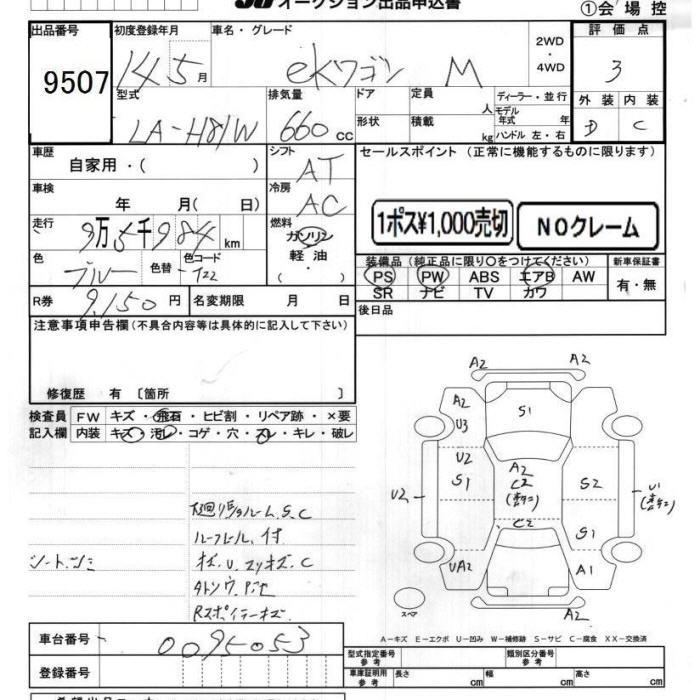 オークション出品申込書
①会場控
出品番号
9507
初度登録年月
14 5月
車名・グレード
ekワゴン M
2WD
・
4WD
評価点
3
外装 内装
D C
型式
LA-H81W
排気量
660cc
ドア
形状
定員 人
積載 kg
ディーラー・並行
モデル年式 年
ハンドル 左・右
車歴
自家用・( )
シフト
AT
車検
年 月( 日)
冷房
AC
走行
9万5千984km
燃料
ガソリン
軽油
色
ブルー
色替
色コード
T22
R券
9,150円
名変期限 月 日
セールスポイント (正常に機能するものに限ります)
1ポス¥1,000売切
NOクレーム
装備品(純正品に限り○をつけてください)
PS PW ABS エアB AW
SR ナビ TV カワ
新車保証書
有・無
後日品
注意事項申告欄(不具合内容等は具体的に記入して下さい)
修復歴 有〔箇所 〕
検査員
記入欄
FW キズ・飛石・ヒビ割・リペア跡・×要
内装 キズ・汚レ・コゲ・穴・スレ・キレ・破レ
ルーフレール.付
シート.シミ
A2
A2
A2
U3
S1
U2
S1
A2
C2
S2
U2
U1
C2
S1
UA2
A1
スペア
A2
A-キズ E-エクボ U-凹み W-補修跡 S-サビ C-腐食 XX-交換済
車台番号
0095053
登録番号
型式指定番号
参考
類別区分番号
参考
車庫証明用
参考
長さ cm
幅 cm
高さ cm